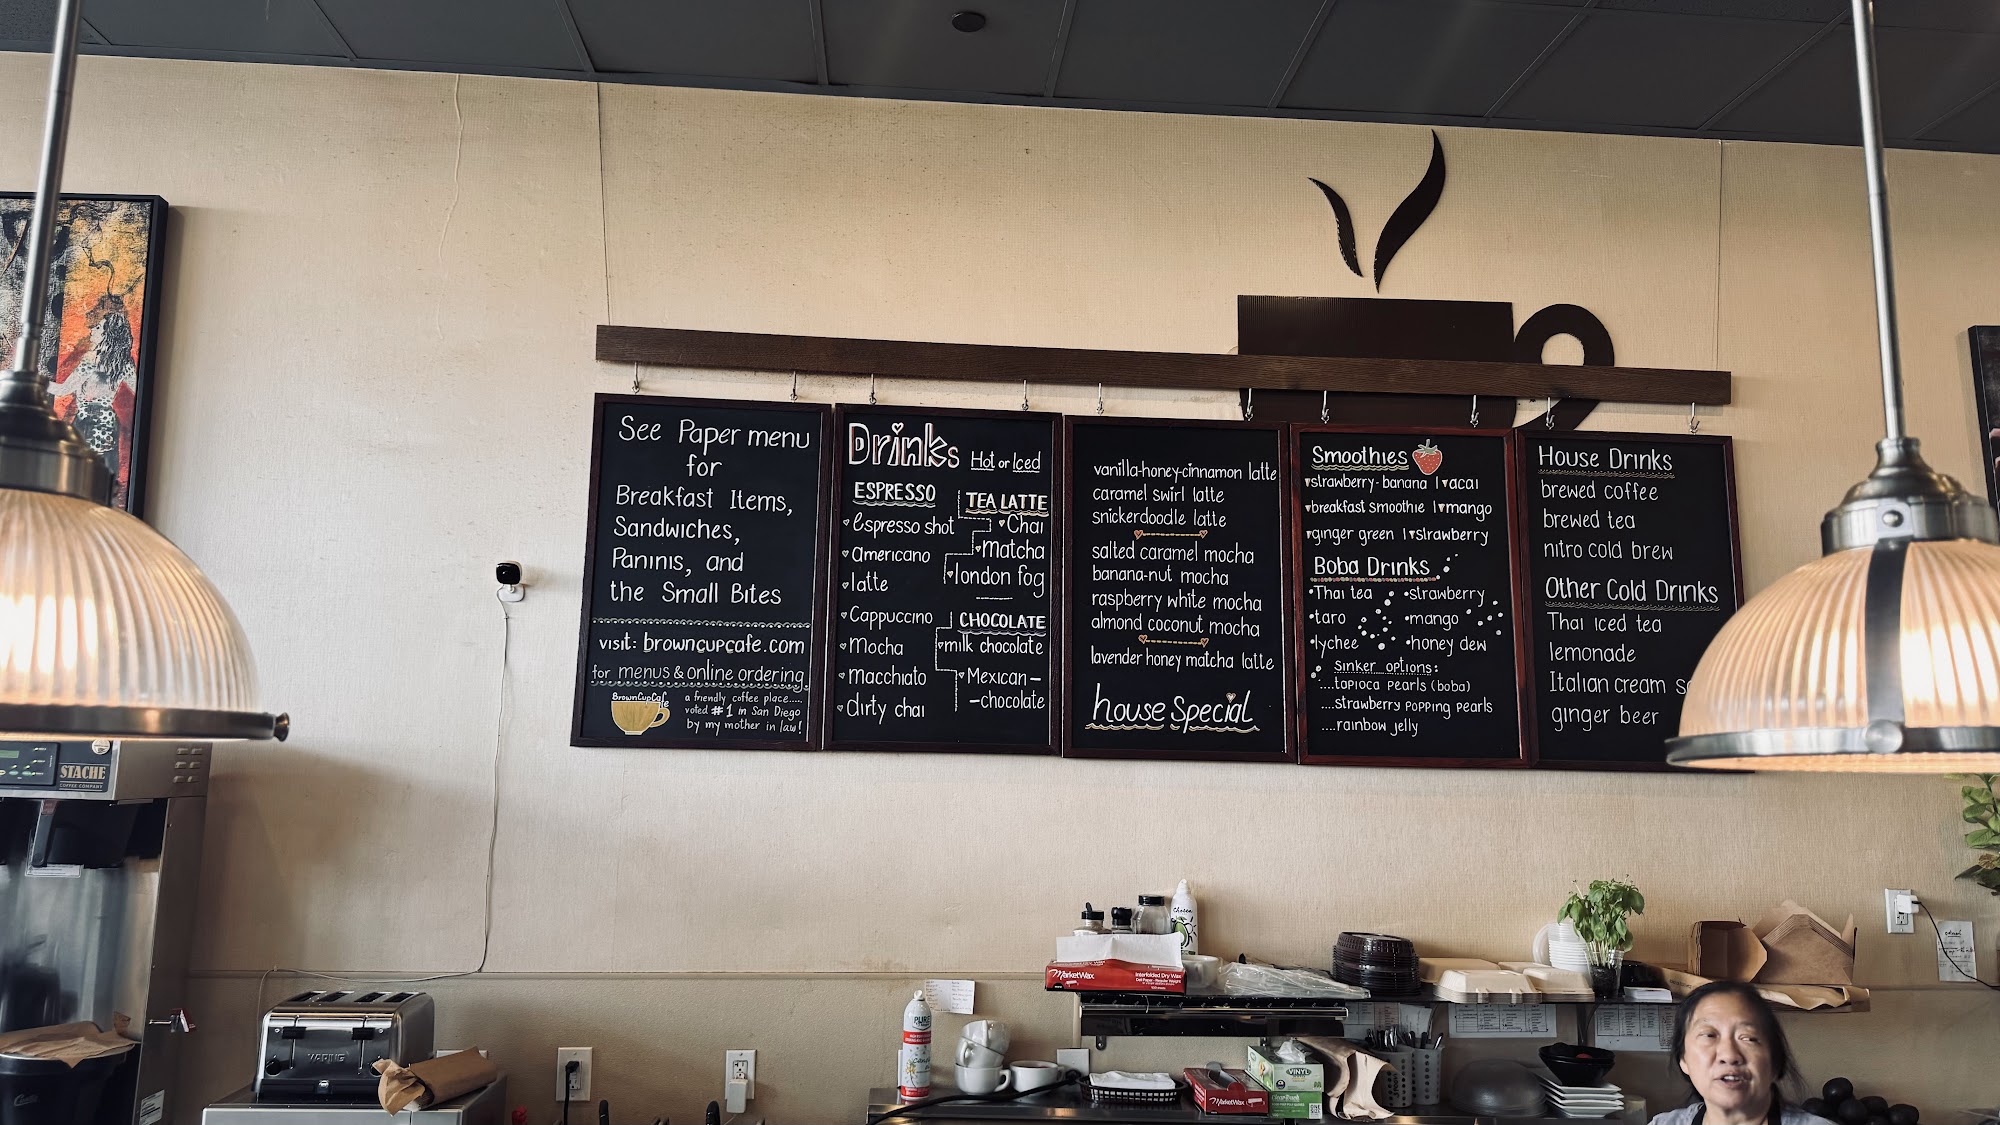 See Paper menu
for
Breakfast Items,
Sandwiches,
Paninis, and
the Small Bites
visit: browncupcafe.com
for menus & online ordering
BrownCupCafe
a friendly coffee place.....
voted #1 in San Diego
by my mother in law!
Drinks Hot or Iced
ESPRESSO
espresso shot
americano
latte
Cappuccino
Mocha
macchiato
dirty chai
TEA LATTE
Chai
matcha
london fog
CHOCOLATE
milk chocolate
Mexican-
-chocolate
vanilla-honey-cinnamon latte
caramel swirl latte
snickerdoodle latte
salted caramel mocha
banana-nut mocha
raspberry white mocha
almond coconut mocha
lavender honey matcha latte
house special
Smoothies
strawberry-banana | acai
breakfast smoothie | mango
ginger green | strawberry
Boba Drinks
Thai tea strawberry
taro mango
lychee honey dew
Sinker options:
....tapioca pearls (boba)
....strawberry popping pearls
....rainbow jelly
House Drinks
brewed coffee
brewed tea
nitro cold brew
Other Cold Drinks
Thai iced tea
lemonade
Italian cream
ginger beer
STACHE
COFFEE COMPANY
WARING
PURE
Chosen
MarketWax
Interfolded Dry Wax
MarketWax
VINYL